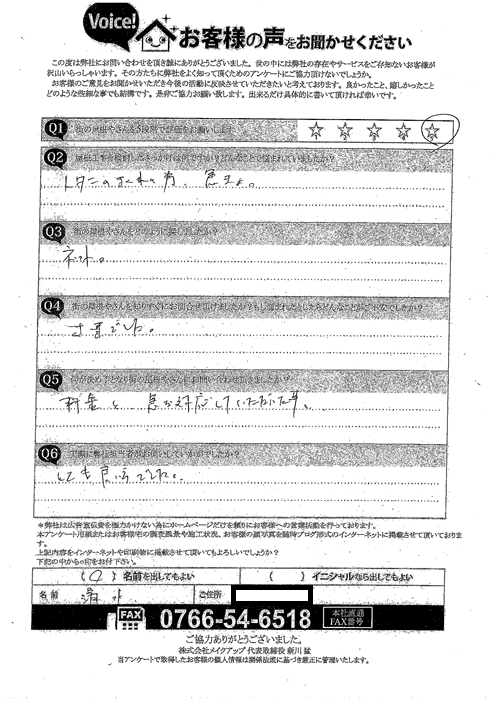 Voice!
お客様の声をお聞かせください
この度は弊社にお問い合わせを頂き誠にありがとうございます。世の中には弊社の存在やサービスをご存知ないお客様が
沢山いらっしゃいます。その方たちに弊社をよく知って頂くためのアンケートにご協力頂けないでしょうか。
お客様のご意見をお聞かせいただき今後の活動に反映させていただきたいと考えております。良かったこと、嬉しかったこと
どのような些細な事でも結構です。是非ご協力お願い致します。出来るだけ具体的に書いて頂ければ幸いです。
Q1 街の屋根やさんを5段階で評価をお願いします
1 2 3 4 5
Q2 屋根工事を検討したきっかけは何ですか?どんなことで悩まれていましたか?
Q3 街の屋根やさんをどのように探しましたか?
ネット。
Q4
Q5
料金と 急な対応していただいた事。
Q6 実際に弊社担当者がお伺いしていかがでしたか?
とても良いでした。
*弊社は広告宣伝費を極力かけない為にホームページだけを頼りにお客様への営業活動を行っております。
本アンケート用紙またはお客様宅の調査風景や施工状況、お客様の顔写真を随時ブログ形式のインターネットに掲載させて頂いております。
上記内容をインターネットや印刷物に掲載させて頂いてもよろしいでしょうか?
下記の中から○印をお付け下さい。
(○) 名前を出してもよい ( ) イニシャルなら出してもよい
名前 ご住所
FAX 0766-54-6518 本社直通 FAX番号
ご協力ありがとうございました。
株式会社メイクアップ 代表取締役 新川 猛
当アンケートで取得したお客様の個人情報は関係法規に基づき厳正に管理いたします。